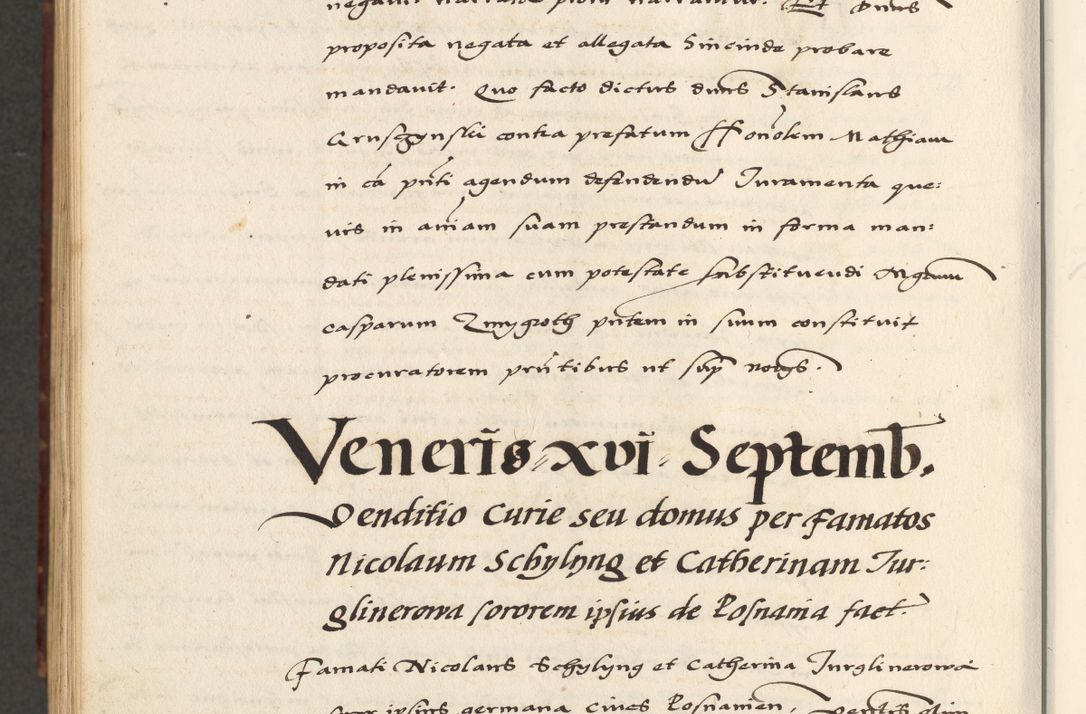 proposita negata et allegata hincinde probare
mandavit. Quo facto dictus dnus Stanislaus
contra prefatum Honolem Mathiam
in cā pnti agendum defendendū Iuramenta que:
vis in aniam suam prestandum in forma man:
dati plenissima cum potestate substituendi
casparum Zmygroth pntem in suum constituit
procuratorem pntibus ut sup
Veneris xvi Septemb.
Venditio Curie seu domus per famatos
Nicolaum Schylyng et Catherinam Iur:
glinerowa sororem ipsius de Posnania fact.
Famati Nicolaus Schylyng et Catherina Iurglinerowa
soror ipsius germana cives Posnanien.